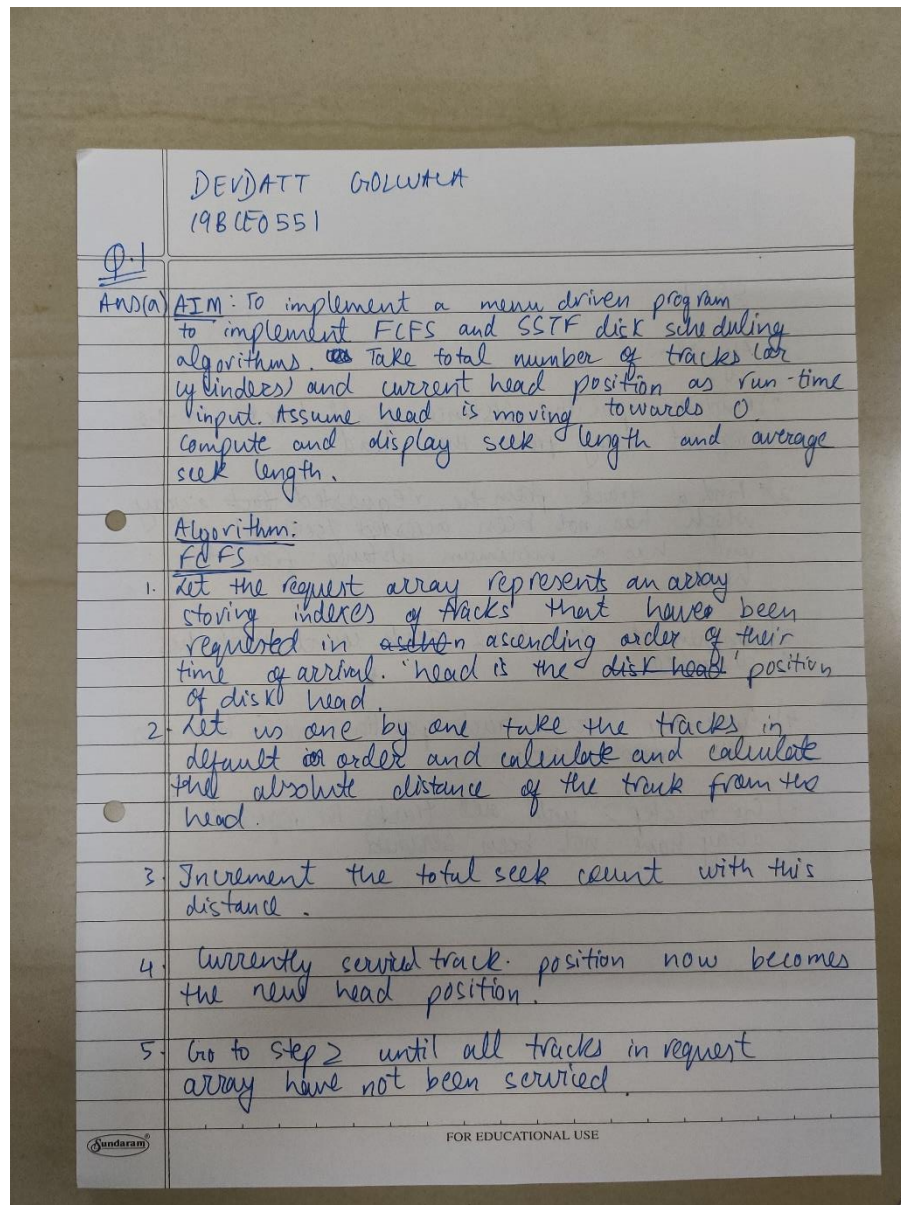 DEVDATT GOLWALA
19BCE0551
Q.1
Ans(a) AIM: To implement a menu driven program
to implement FCFS and SSTF disk scheduling
algorithms. Take total number of tracks (or
cylinders) and current head position as run-time
input. Assume head is moving towards 0
compute and display seek length and average
seek length.
Algorithm:
FCFS
1. Let the request array represents an array
storing indexes of tracks that have been
requested in ascending order of their
time of arrival. 'head is the disk head' position
of disk head.
2. Let us one by one take the tracks in
default order and calculate and calculate
the absolute distance of the track from the
head.
3. Increment the total seek count with this
distance.
4. Currently serviced track. position now becomes
the new head position.
5. Go to step 2 until all tracks in request
array have not been serviced.
Sundaram
FOR EDUCATIONAL USE